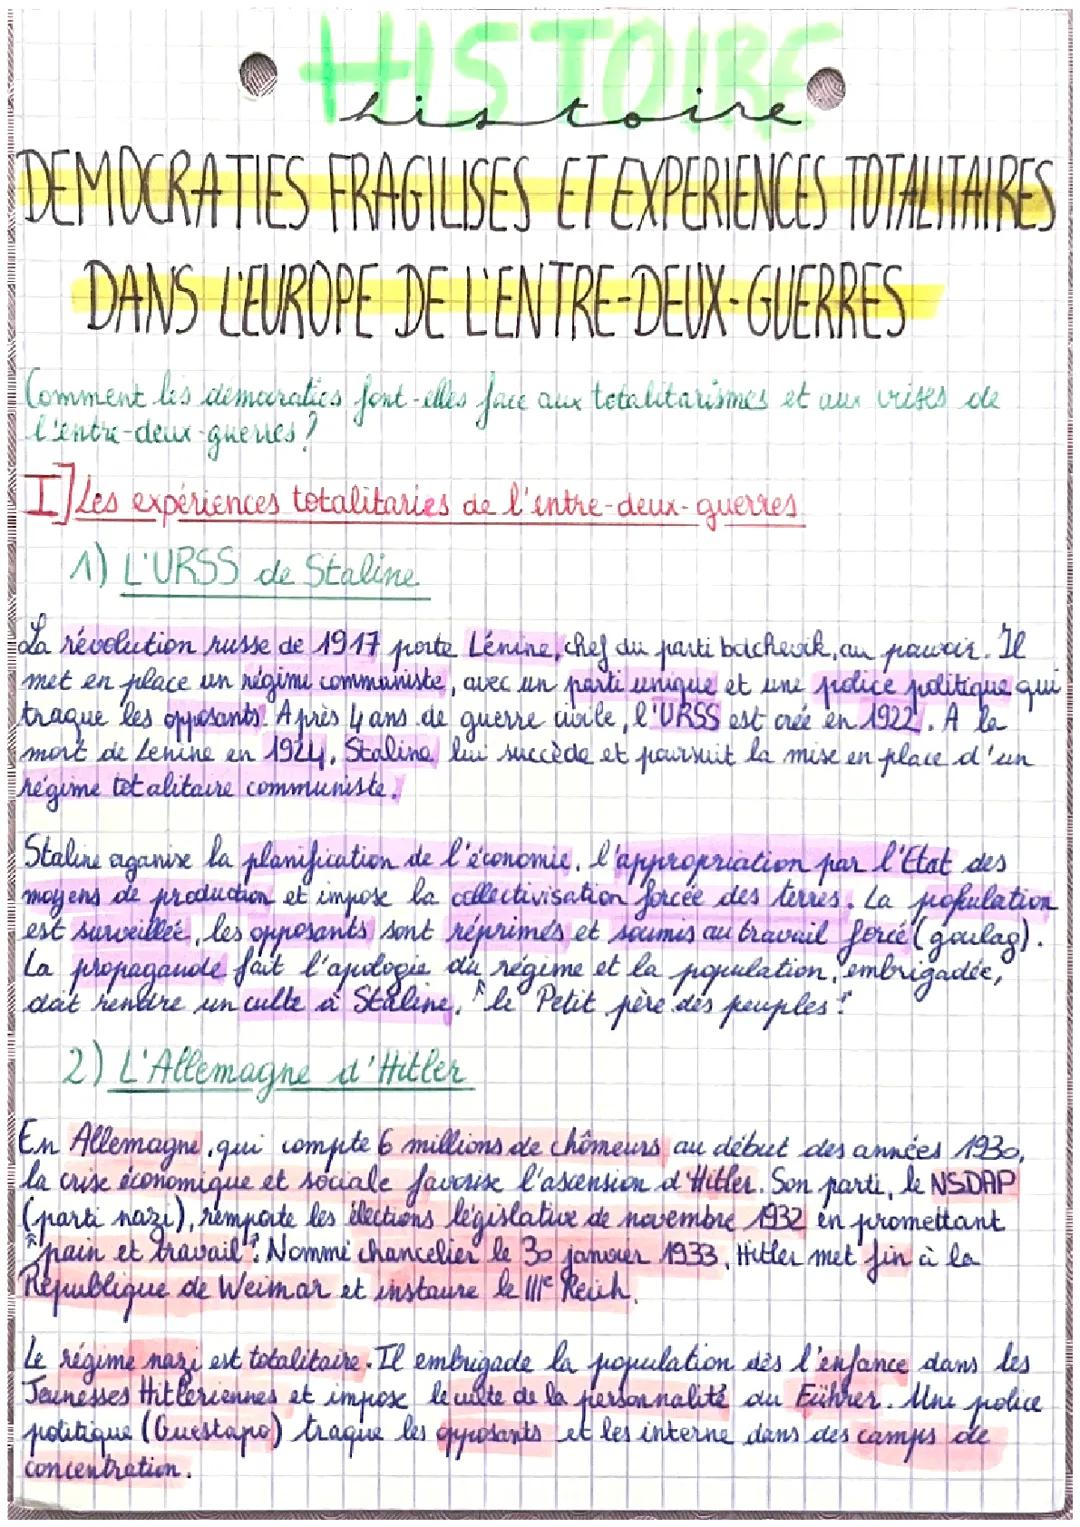 HISTOIRE
histoire
DEMOCRATIES FRAGILISES ET EXPERIENCES TOTALITAIRES
DANS L'EUROPE DE L'ENTRE-DEUX-GUERRES
Comment les démocraties font-elles face aux totalitarismes et aux crises de
l'entre-deux-guerres ?
I] Les expériences totalitaries de l'entre-deux-guerres
1) L'URSS de Staline
La révolution russe de 1917 porte Lénine, chef du parti bolchevik, au pouvoir. Il
met en place un régime communiste, avec un parti unique et une police politique qui
traque les opposants. Après 4 ans de guerre civile, l'URSS est crée en 1922. A la
mort de Lenine en 1924, Staline lui succède et poursuit la mise en place d'un
régime totalitaire communiste.
Staline organise la planification de l'économie, l'appropriation par l'Etat des
moyens de production et impose la collectivisation forcée des terres. La population
est surveillée, les opposants sont réprimés et soumis au travail forcé (goulag).
La propagande fait l'apologie du régime et la population, embrigadée,
doit rendre un culte à Staline, "le Petit père des peuples".
2) L'Allemagne d'Hitler
En Allemagne, qui compte 6 millions de chômeurs au début des années 1930,
la crise économique et sociale favorise l'ascension d'Hitler. Son parti, le NSDAP
(parti nazi), remporte les élections législative de novembre 1932 en promettant
"pain et travail". Nommé chancelier le 30 janvier 1933, Hitler met fin à la
République de Weimar et instaure le IIIe Reich.
Le régime nazi est totalitaire. Il embrigade la population dès l'enfance dans les
Jeunesses Hitlériennes et impose le culte de la personnalité du Führer. Une police
politique (Guestapo) traque les opposants et les interne dans des camps de
concentration.